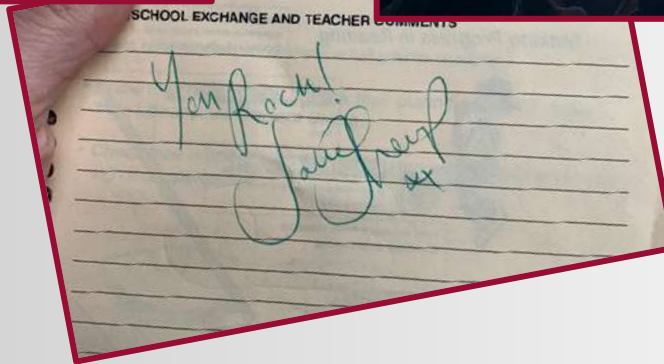 SCHOOL EXCHANGE AND TEACHER COMMENTS
You Rock!
xx